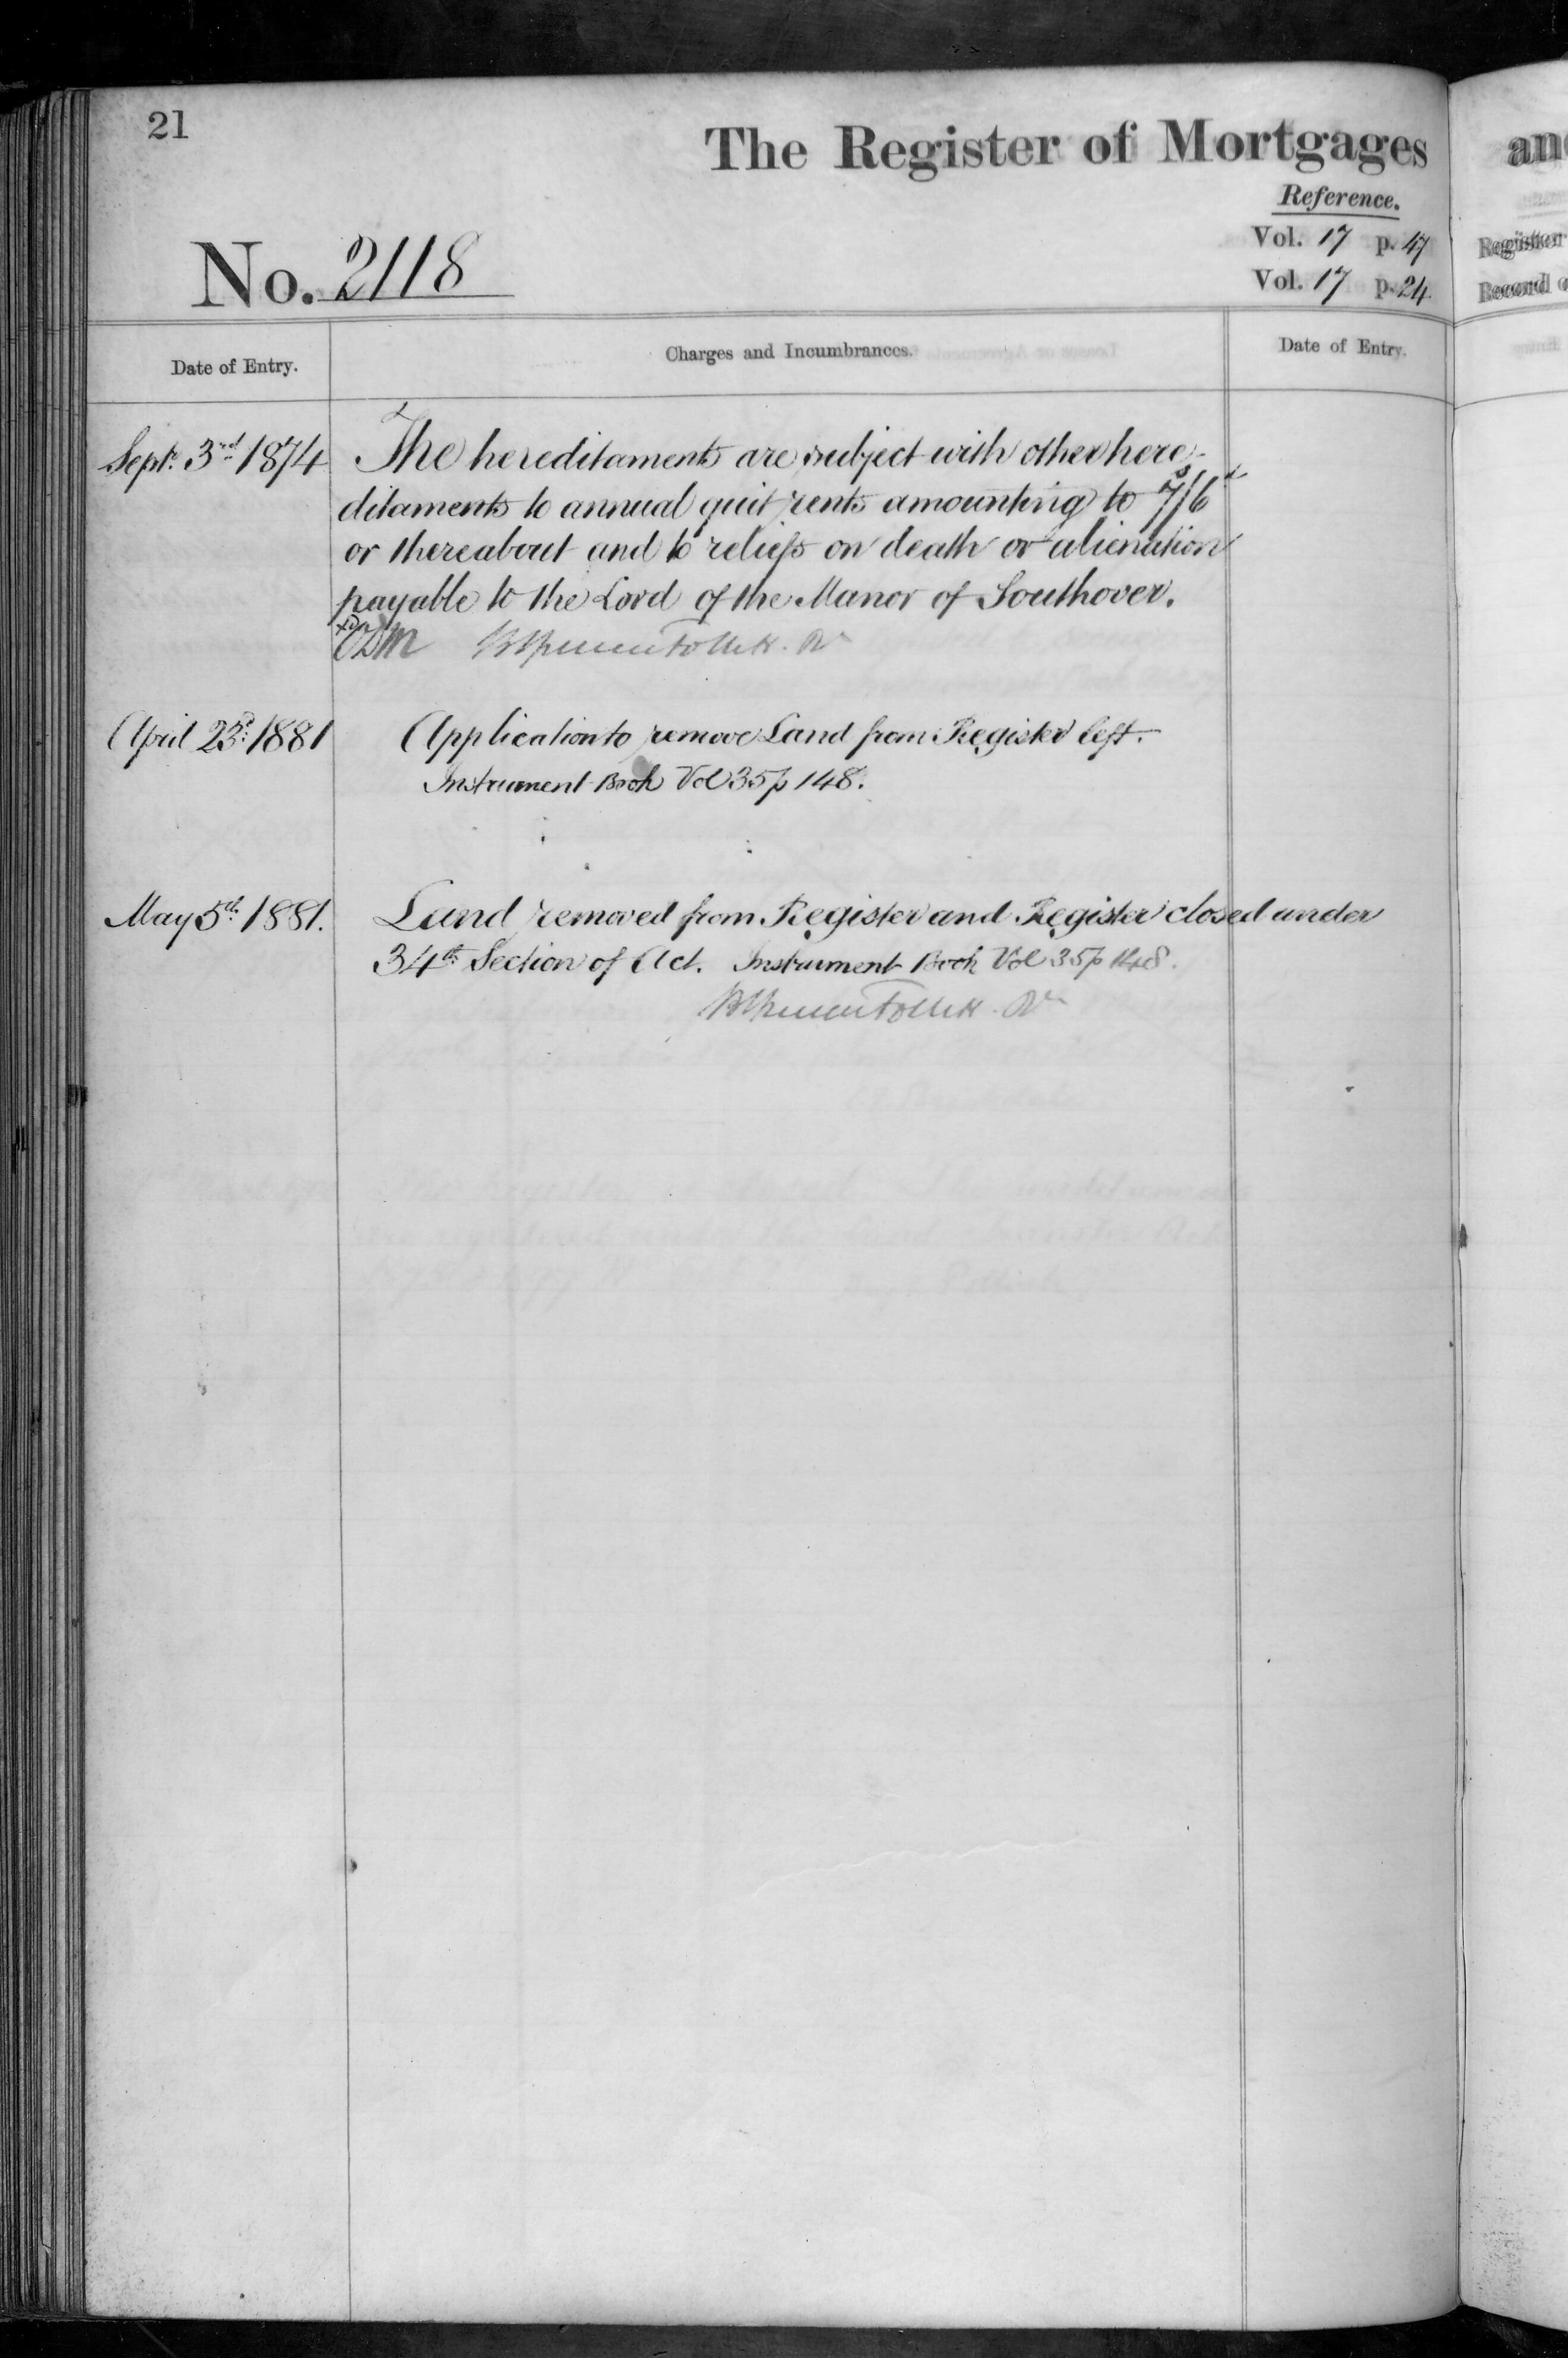 21
The Register of Mortgages
Reference.
Vol. 17 p. 47
Vol. 17 p. 24
No. 2118
Date of Entry.
Charges and Incumbrances.
Date of Entry.
Sept. 3rd 1874
The hereditaments are subject with other here-
ditaments to annual quit rents amounting to 7s/6d
or thereabout and to reliefs on death or alienation
payable to the Lord of the Manor of Southover.
April 23rd 1881
Application to remove Land from Register left.
Instrument Book Vol 35 p 148.
May 5th 1881.
Land removed from Register and Register closed under
34th Section of Act. Instrument Book Vol 35 p 148.
and
Register
Record o